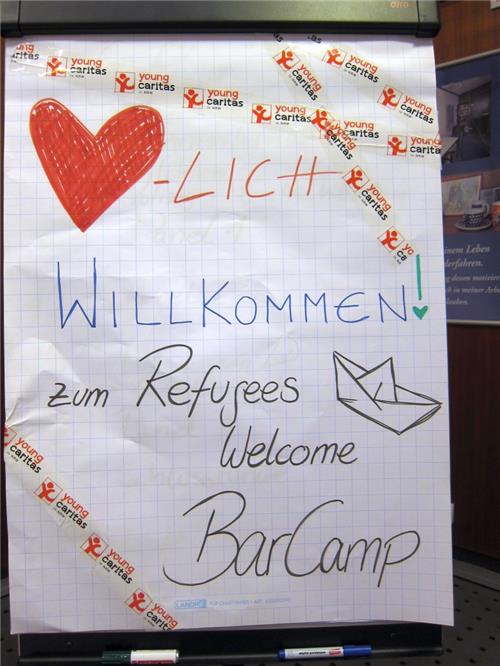 young caritas
young caritas
young caritas
young caritas
young caritas
young caritas
young caritas
young caritas
young caritas
young caritas
-LICH
WILLKOMMEN!
zum Refugees
Welcome
BarCamp
young caritas
young caritas
young caritas
young caritas
LANDRÉ
einem Leben
erfahren.